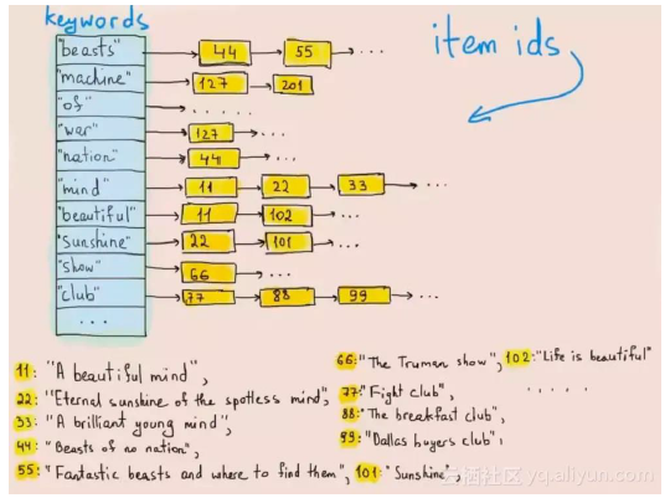 keywords
item ids
"beasts" 44 55 ...
"machine" 127 201
"of" ......
"war" 127 ...
"nation" 44 ...
"mind" 11 22 33 ...
"beautiful" 11 102 ...
"Sunshine" 22 101 ...
"show" 66 ...
"club" 77 88 99 ...
...
11: "A beautiful mind",
22: "Eternal sunshine of the spotless mind",
33: "A brilliant young mind",
44: "Beasts of no nation",
55: "Fantastic beasts and where to find them", 101: "Sunshine",
66: "The Truman show", 102: "Life is beautiful"
77: "Fight club", .....
88: "The breakfast club",
99: "Dallas buyers club",
云栖社区 yq.aliyun.com